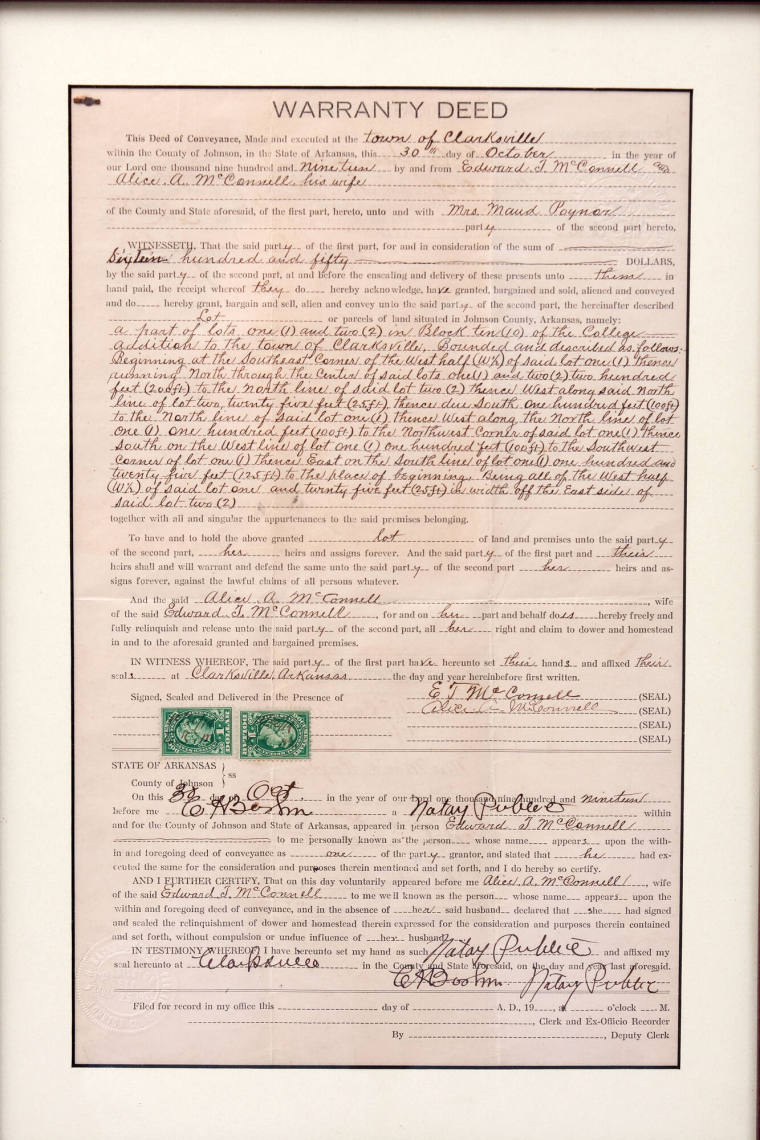 WARRANTY DEED
This Deed of Conveyance, Made and executed at the town of Clarksville
within the County of Johnson, in the State of Arkansas, this 30th day of October in the year of
our Lord one thousand nine hundred and nineteen by and from Edward T. McConnell and
Alice. A. McConnell, his wife
of the County and State aforesaid, of the first part, hereto, unto and with Mrs. Maud Poynor
party of the second part hereto,
WITNESSETH, That the said party of the first part, for and in consideration of the sum of
Sixteen hundred and fifty DOLLARS,
by the said party of the second part, at and before the ensealing and delivery of these presents unto them in
hand paid, the receipt whereof they do hereby acknowledge, have granted, bargained and sold, aliened and conveyed
and do hereby grant, bargain and sell, alien and convey unto the said party of the second part, the hereinafter described
Lot or parcels of land situated in Johnson County, Arkansas, namely:
a part of lots one (1) and two (2) in Block ten (10) of the College
addition to the town of Clarksville, Bounded and described as follows:
Beginning at the Southeast Corner of the West half (W½) of said lot one (1) thence
running North through the Center of said lots one (1) and two (2) two hundred
feet (200ft) to the North line of said lot two (2) thence West along said North
line of lot two, twenty five feet (25ft) thence due South One hundred feet (100ft)
to the North line of said lot one (1) thence West along the North line of lot
one (1) one hundred feet (100ft) to the Northwest Corner of said lot one (1) thence
South on the West line of lot one (1) one hundred feet (100ft) to the Southwest
Corner of lot one (1) thence East on the South line of lot one (1) one hundred and
twenty five feet (125ft) to the place of beginning. Being all of the West half
(W½) of said lot one and twenty five feet (25ft) in width off the East side of
said lot two (2)
together with all and singular the appurtenances to the said premises belonging.
To have and to hold the above granted lot of land and premises unto the said party
of the second part, her heirs and assigns forever. And the said party of the first part and their
heirs shall and will warrant and defend the same unto the said party of the second part her heirs and as-
signs forever, against the lawful claims of all persons whatever.
And the said Alice A. McConnell, wife
of the said Edward T. McConnell, for and on her part and behalf doss hereby freely and
fully relinquish and release unto the said party of the second part, all her right and claim to dower and homestead
in and to the aforesaid granted and bargained premises.
IN WITNESS WHEREOF, The said party of the first part have hereunto set their hands and affixed their
seals at Clarksville, Arkansas the day and year hereinbefore first written.
Signed, Sealed and Delivered in the Presence of E T McConnell (SEAL)
Alice A McConnell (SEAL)
(SEAL)
(SEAL)
STATE OF ARKANSAS
ss
County of Johnson
On this 30 day of Oct. in the year of our Lord one thousand nine hundred and nineteen
before me a Notary Public within
and for the County of Johnson and State of Arkansas, appeared in person Edward T McConnell
to me personally known as the person whose name appears upon the with-
in and foregoing deed of conveyance as one of the party grantor, and stated that he had ex-
ecuted the same for the consideration and purposes therein mentioned and set forth, and I do hereby so certify.
AND I FURTHER CERTIFY, That on this day voluntarily appeared before me Alice. A. McConnell, wife
of the said Edward T. McConnell to me well known as the person whose name appears upon the
within and foregoing deed of conveyance, and in the absence of her said husband declared that she had signed
and sealed the relinquishment of dower and homestead therein expressed for the consideration and purposes therein contained
and set forth, without compulsion or undue influence of her husband
IN TESTIMONY WHEREOF, I have hereunto set my hand as such Notary Public and affixed my
seal hereunto at Clarksville in the County and State aforesaid, on the day and year last aforesaid.
Notary Public
Filed for record in my office this day of A. D., 19 , at o'clock M.
, Clerk and Ex-Officio Recorder
By , Deputy Clerk